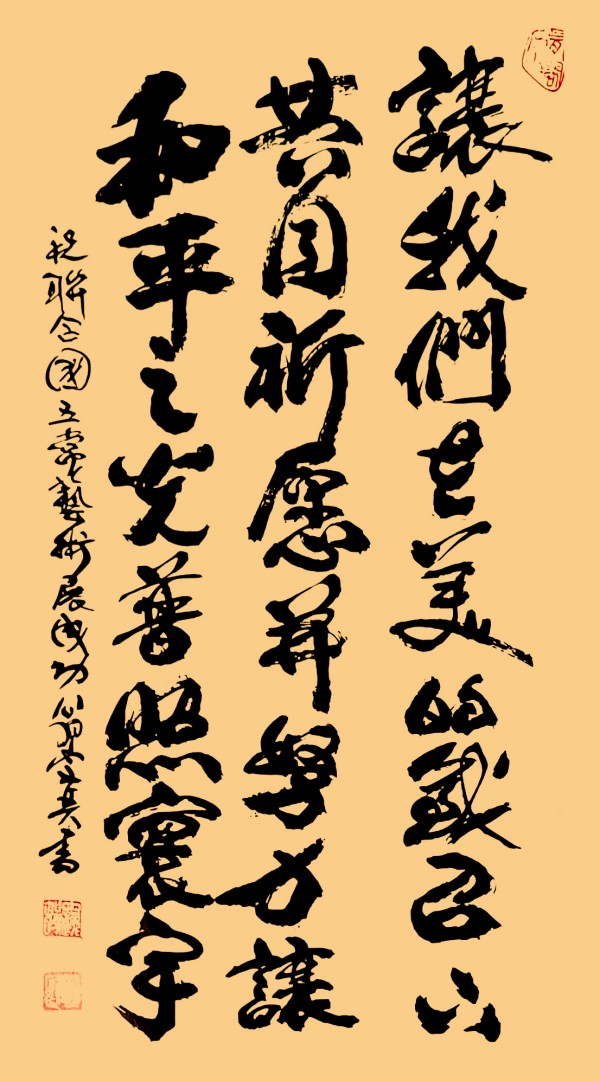 讓我們在美的感召下
共同祈愿并努力讓
和平之光普照寰宇
祝聯合國五常藝術展成功 書